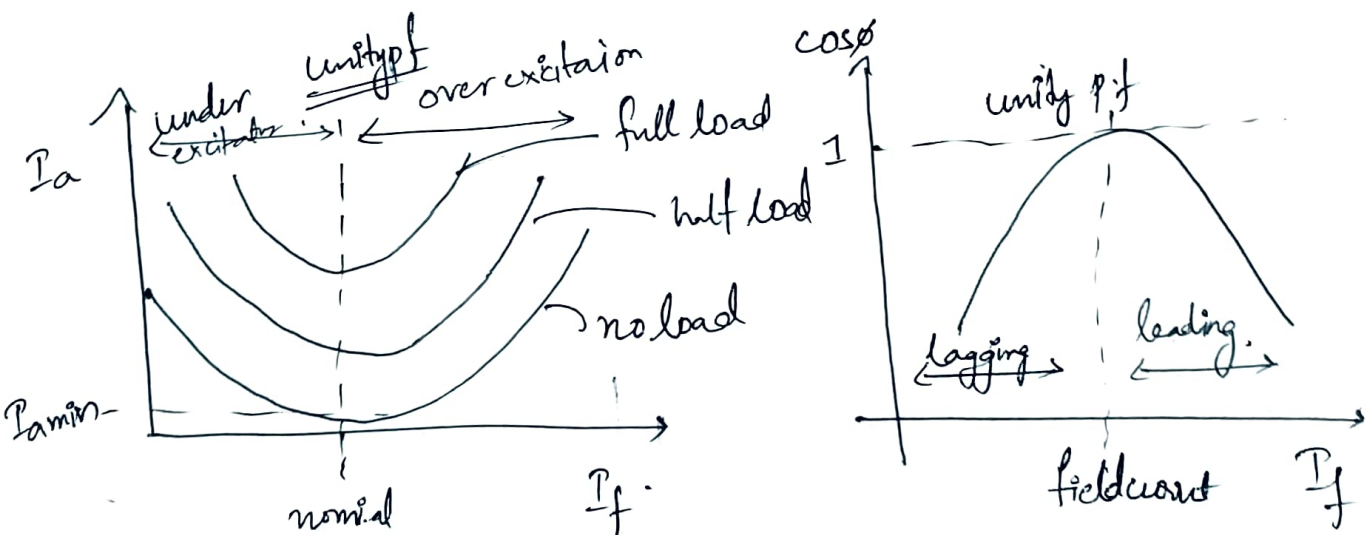 unity pf
under
excitation
over excitaion
full load
Ia
half load
no load
Iamin
nomial
If
cosø
unity p.f
1
lagging
leading.
If